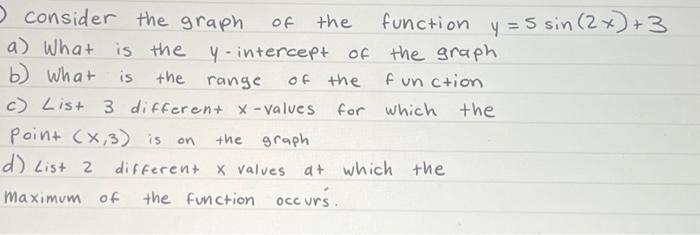 ) consider the graph of the function y = 5 sin(2x)+3
a) What is the y-intercept of the graph
b) what is the range of the function
c) List 3 different x-values for which the
point (x,3) is on the graph
d) List 2 different x values at which the
maximum of the function occurs.